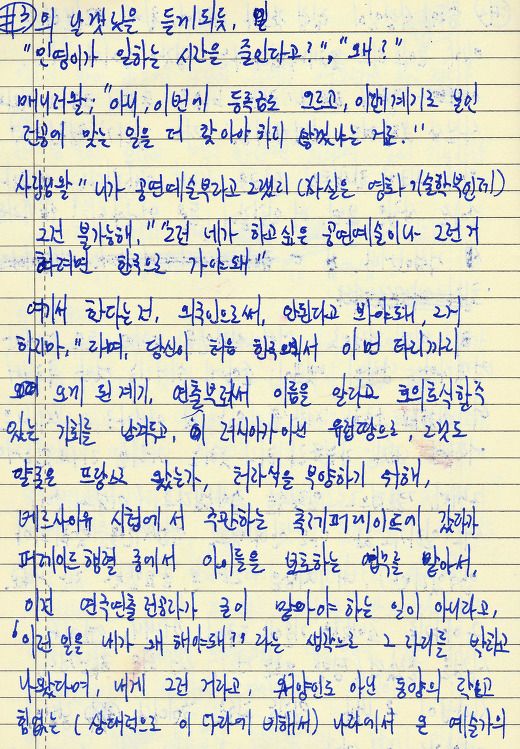 #3의 날갯짓을 듣게되듯,
"인영이가 일하는 시간을 줄인다고?", "왜?"
매니저왈; "아니, 이번에 등록금도 오르고, 이번계기로 본인
전공에 맞는 일을 더 찾아야 하지 않겠냐는 거죠."
사람왈 "내가 공연예술부라고 그랬지 (사실은 영화기술학부인데)
그건 불가능해," "그런 네가 하고싶은 공연예술이나 그런거
하려면 한국으로 가야돼"
여기서 한다는건, 외국인으로써, 안된다고 봐야돼, 그거
하지마," 라며, 당신이 처음 한국에서 이 먼 타지까지
오게 된 계기, 연출부로써 이름을 알리고 호의호식할수
있는 기회를 남겨두고, 이 러시아가 아닌 유럽땅으로, 그것도
얄궂은 프랑스로 왔는가, 처자식을 부양하기 위해,
베르사이유 시청에서 주관하는 축제퍼레이드에 갔다가
퍼레이드행렬 중에서 아이들을 보호하는 업무를 맡아서,
이건 연극연출 전공자가 굳이 맡아야 하는 일이 아니라고,
'이런 일을 내가 왜 해야돼?' 라는 생각으로 그 자리를 박차고
나왔다며, 내게 그런 거라고, 서양인도 아닌 동양의 작고
힘없는 (상대적으로 이 나라에 비해서) 나라에서 온 예술가의